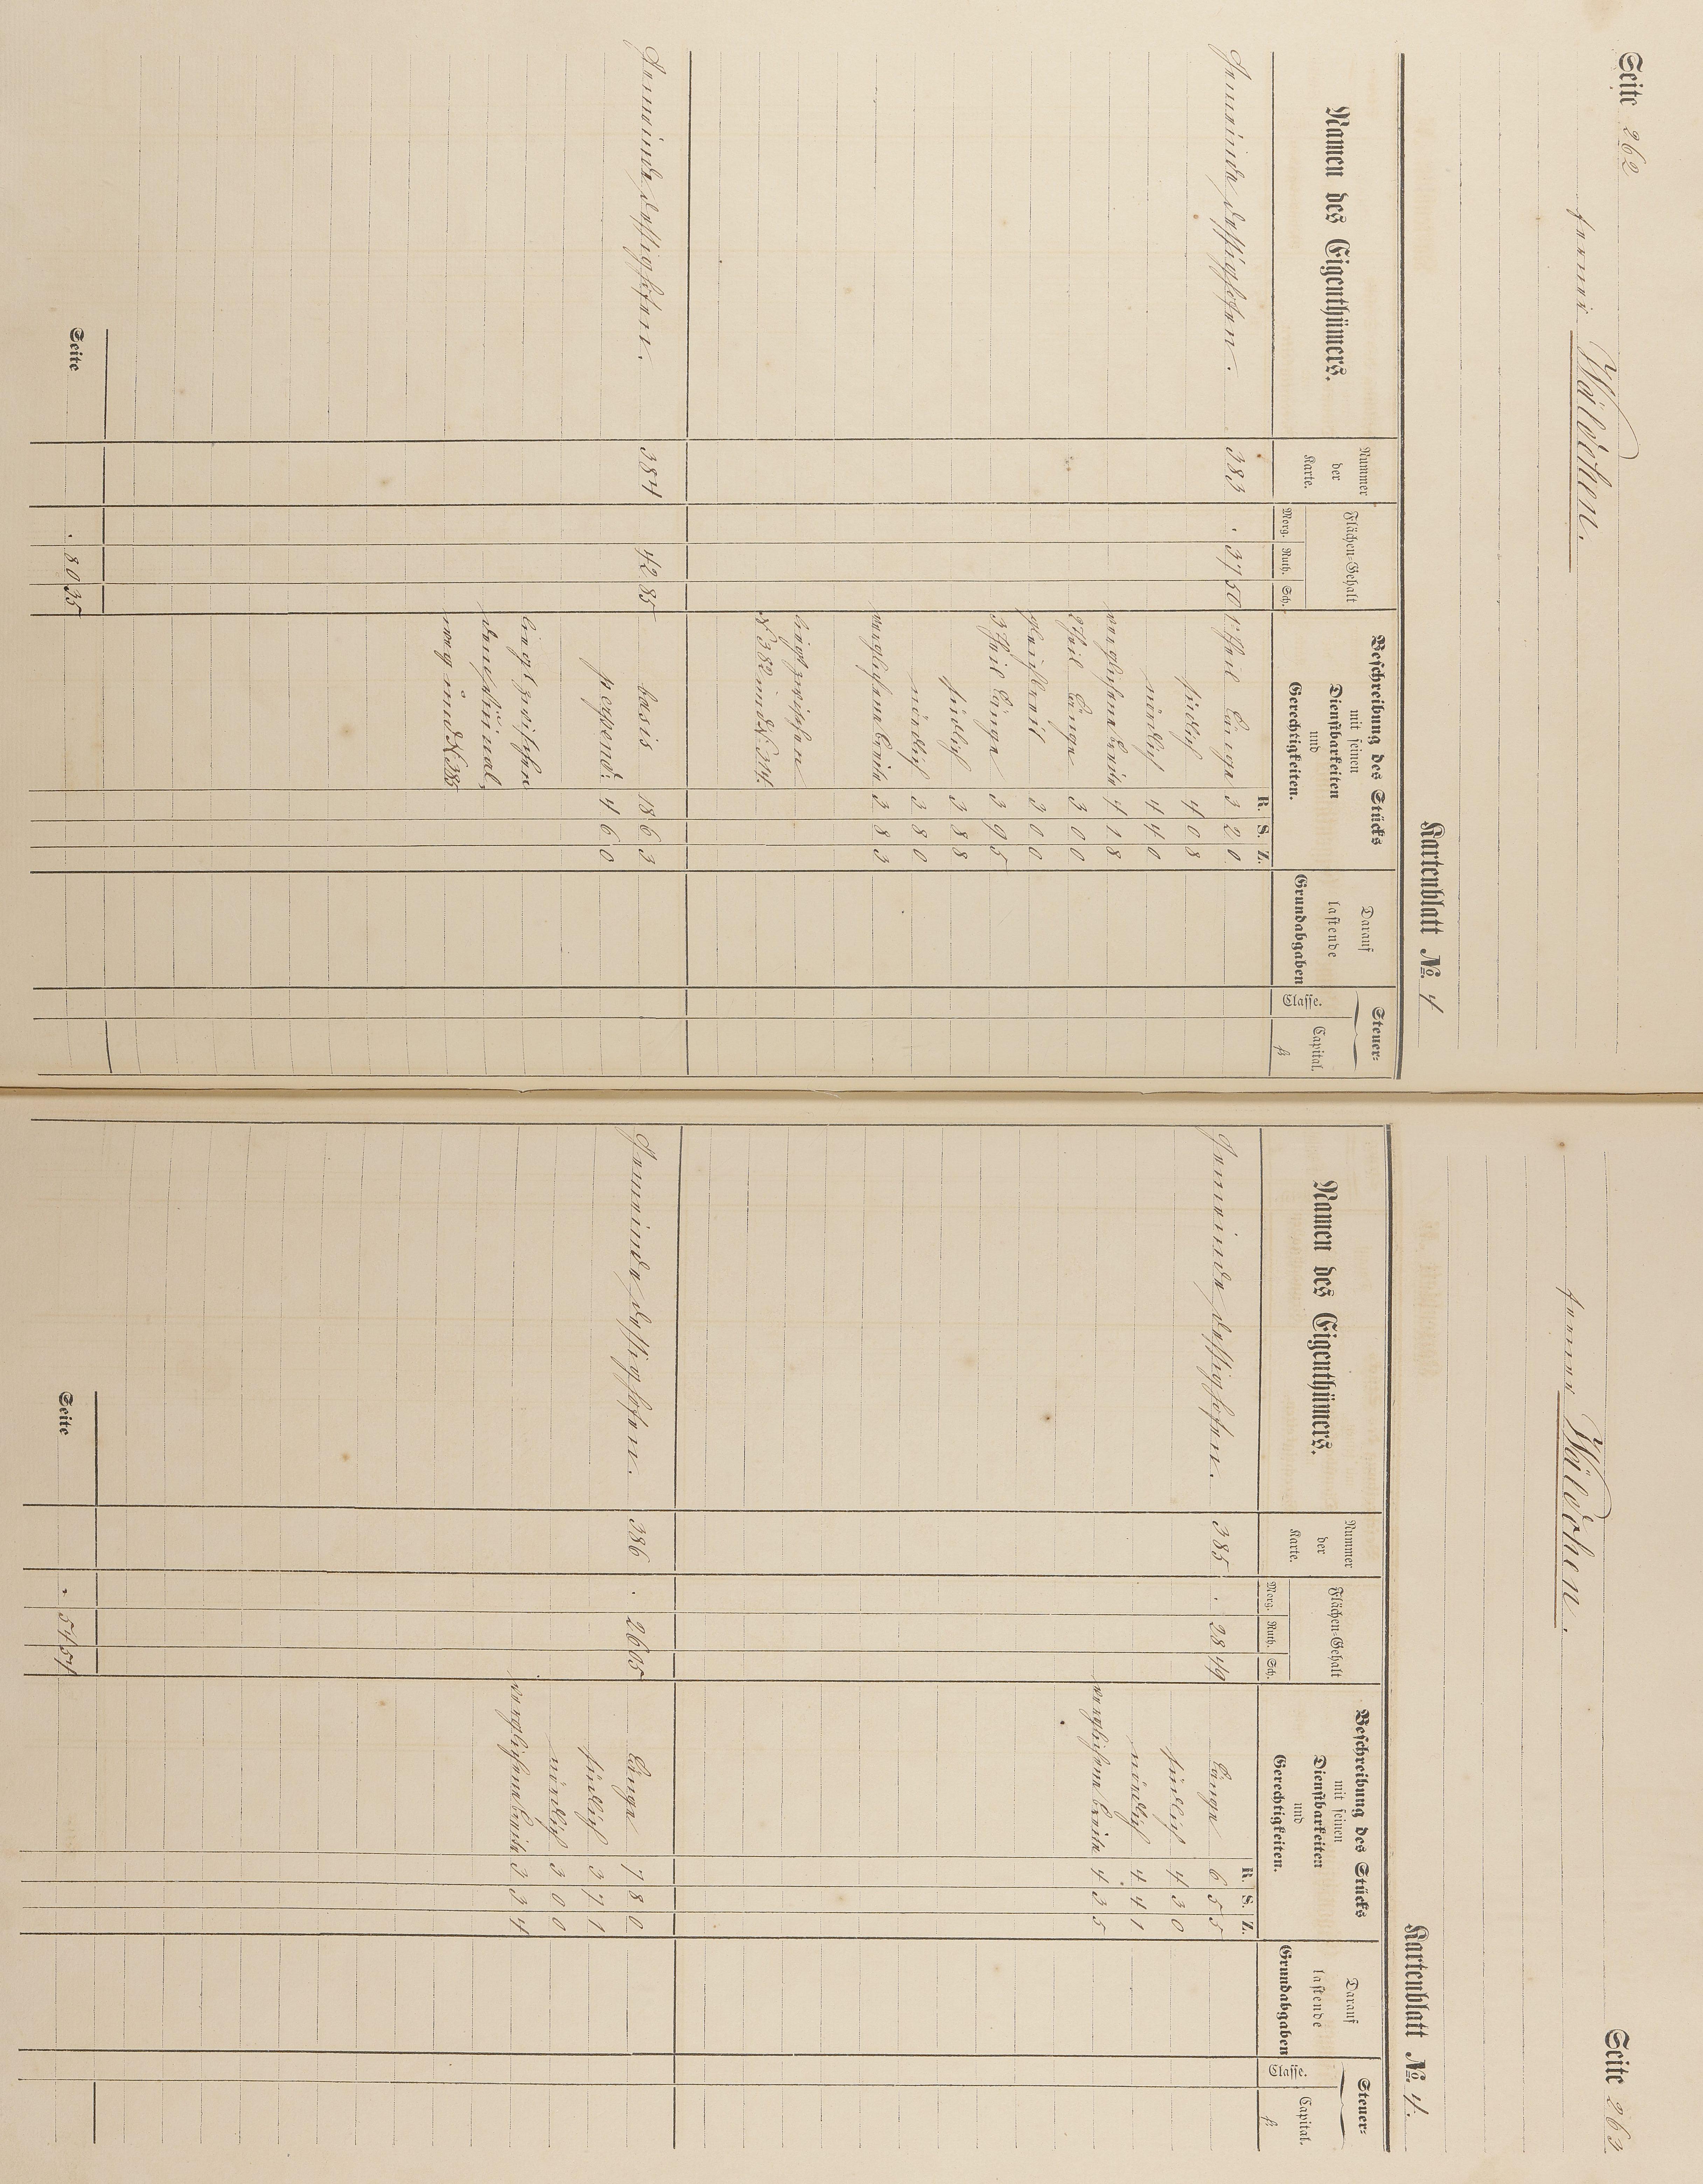 Seite 262
ferner Wäldchen.
Kartenblatt No. 4
Namen des Eigenthümers.
Nummer der Karte.
Flächen-Gehalt
Morg. Ruth. Sch.
Beschreibung des Stücks
mit seinen
Dienstbarkeiten
und
Gerechtigkeiten.
R. S. Z.
Darauf
lastende
Grundabgaben
Steuer-
Classe.
Capital.
fl
Gemeinde Dessighofen. 383 . 37 50 1 Theil Länge 3 2 0
südlich 4 0 8
nördlich 4 4 0
verglichene Breite 4 1 8
2 Theil Länge 3 0 0
gleichbreit 3 0 0
3 Theil Länge 3 9 5
südlich 3 8 8
nördlich 3 8 0
verglichene Breite 3 8 3
liegt zwischen
N. 382 und N. 314.
Gemeinde Dessighofen. 384 42 85 basis 18 6 3
perpend: 4 6 0
liegt zwischen
weg und N. 385
Seite . 80 35
Seite 263
ferner Wäldchen.
Kartenblatt No. 4.
Namen des Eigenthümers.
Nummer der Karte.
Flächen-Gehalt
Morg. Ruth. Sch.
Beschreibung des Stücks
mit seinen
Dienstbarkeiten
und
Gerechtigkeiten.
R. S. Z.
Darauf
lastende
Grundabgaben
Steuer-
Classe.
Capital.
fl
Gemeinde Dessighofen. 385 . 28 49 Länge 6 5 5
südlich 4 3 0
nördlich 4 4 1
verglichene Breite 4 3 5
Gemeinde Dessighofen. 386 . 26 05 Länge 7 8 0
südlich 3 7 1
nördlich 3 0 0
verglichene Breite 3 3 4
Seite . 54 54